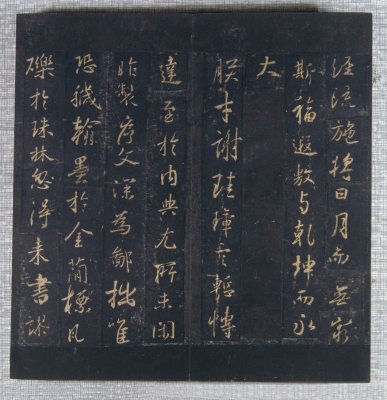 經流施將日月而無窮
斯福遐敷与乾坤而永
大
朕才謝珪璋言慚博
達至於内典尤所未閑
昨製序文深為鄙拙唯
恐穢翰墨於金簡標瓦
礫於珠林忽得来書謬